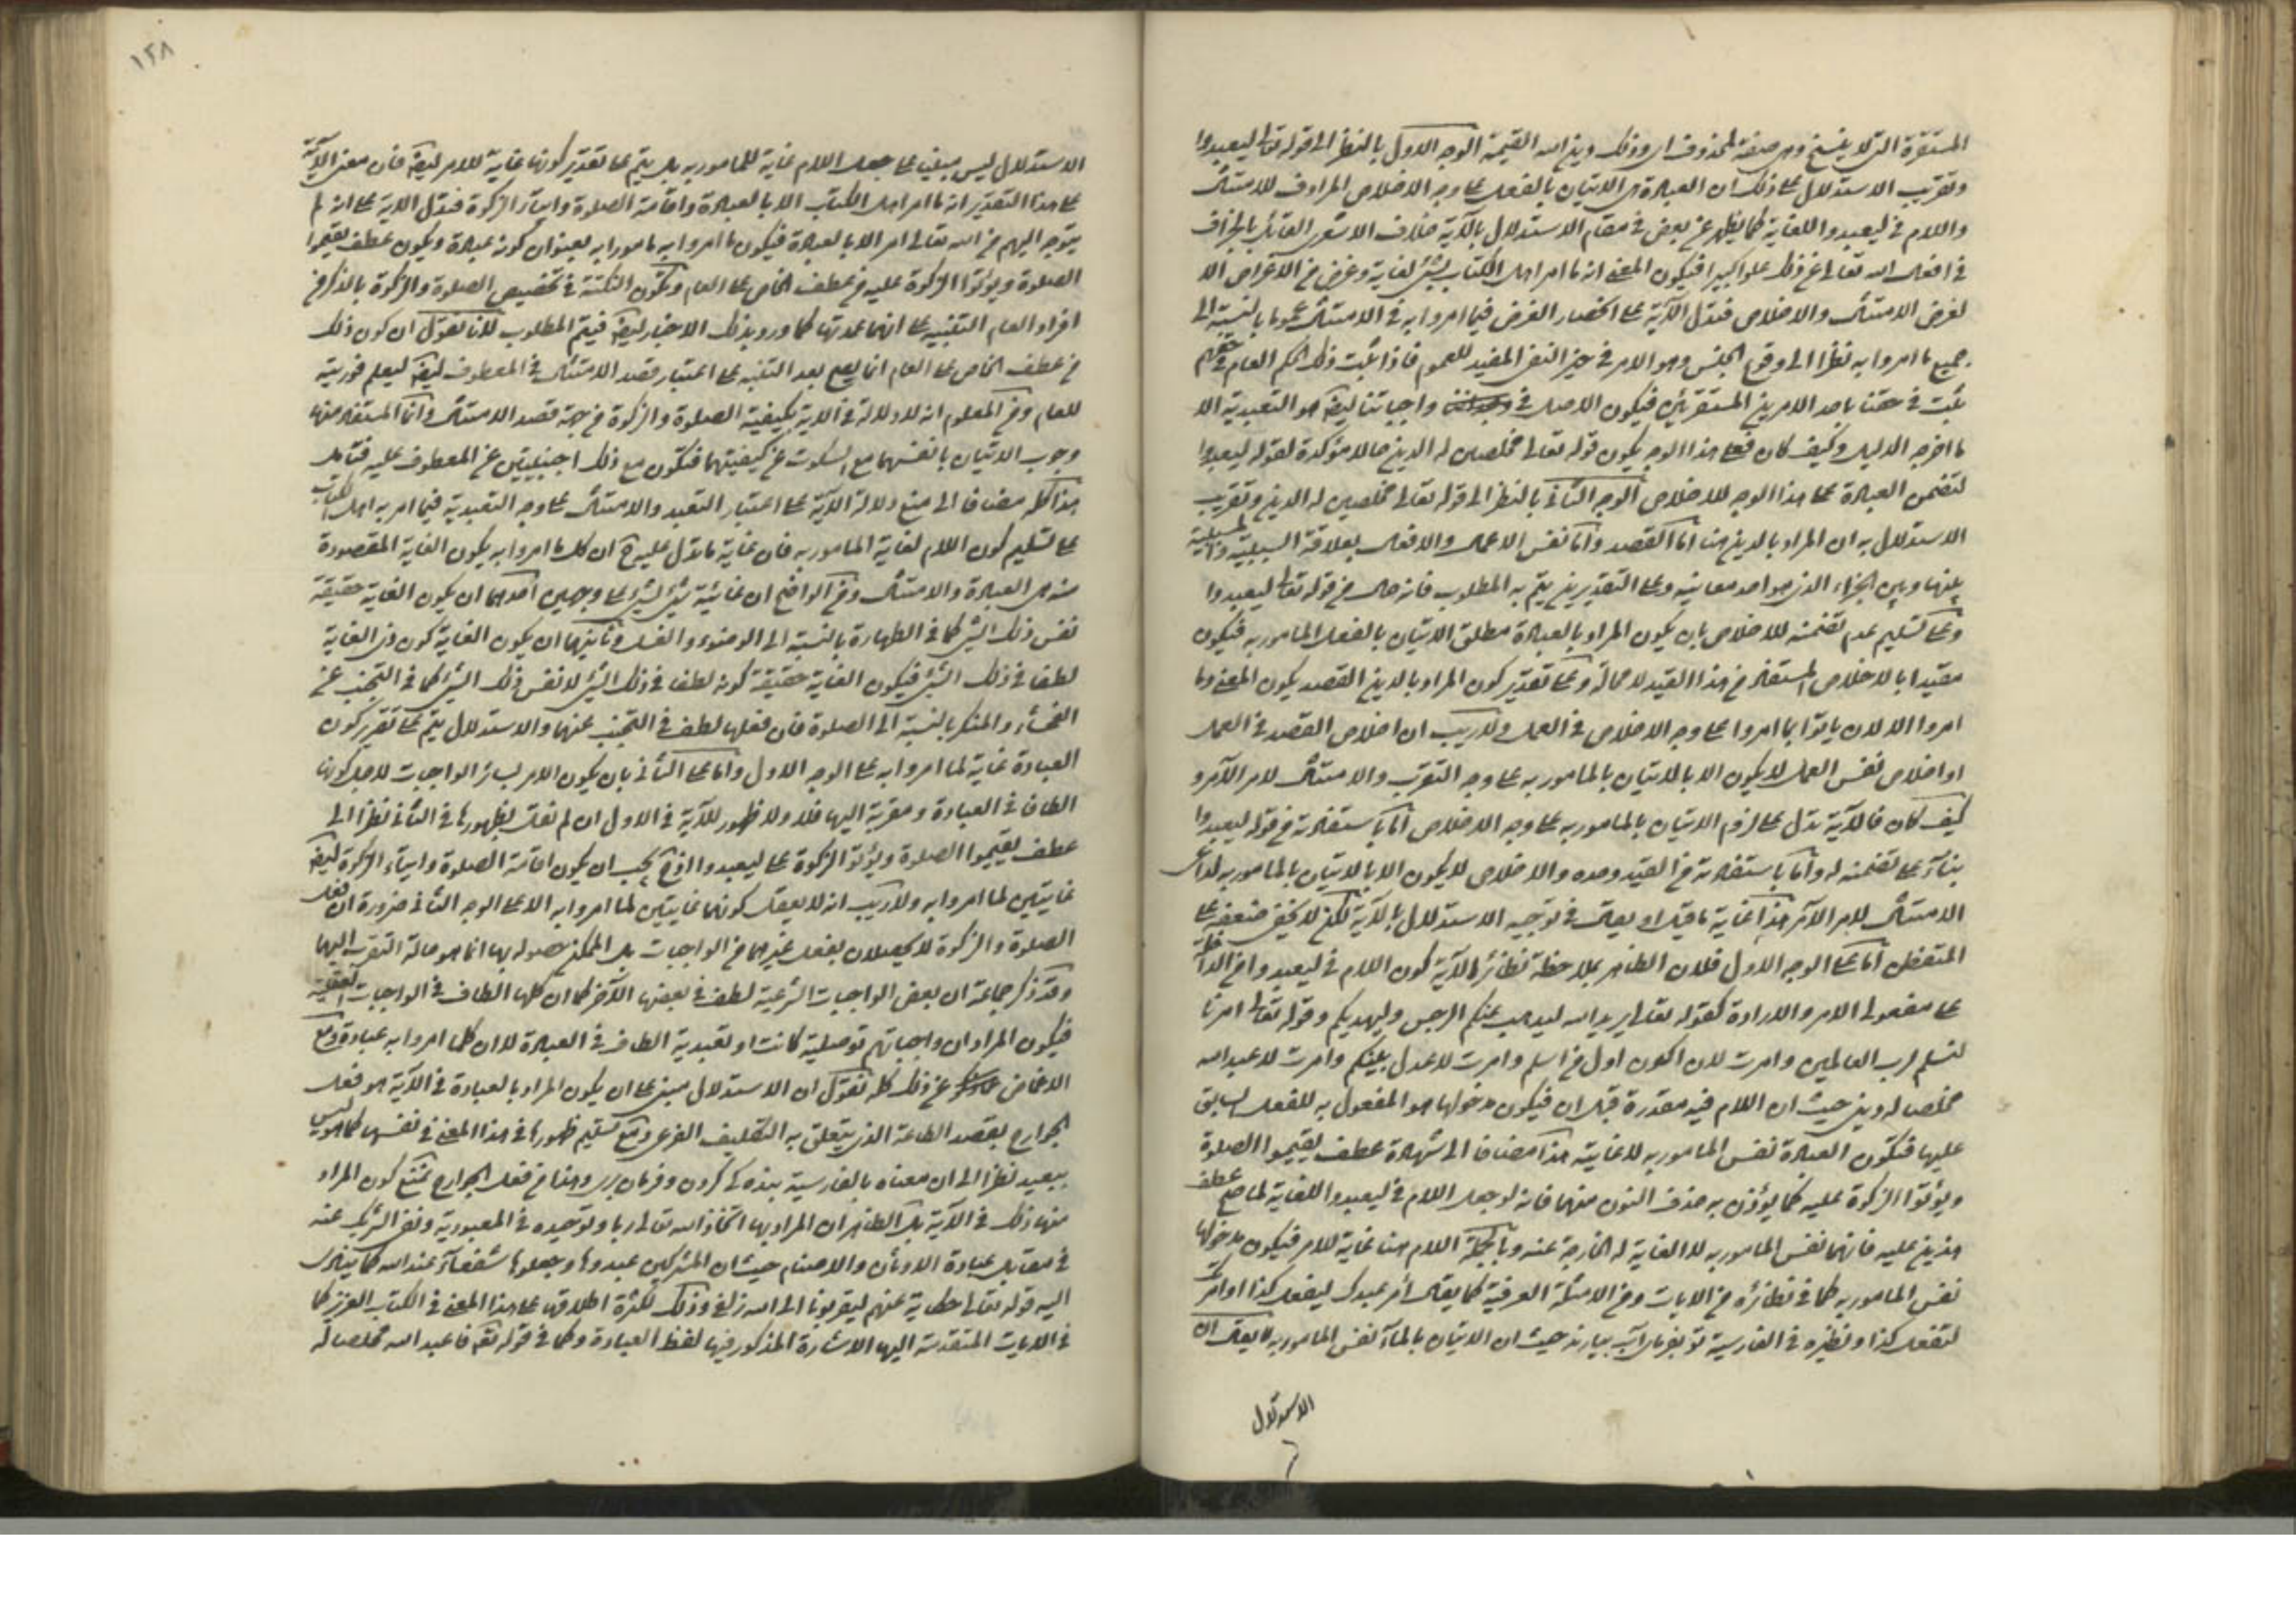 المستقرة التى لا ينسخ وهى صفة لمحذوف اى وذلك دين الله القيمة الوجه الاول بالنظر الى قوله تعالى ليعبدوا
وتقريب الاستدلال على ذلك ان العبادة هى الاتيان بالفعل على وجه الاخلاص المرادف للامتثال
واللام فى ليعبدوا للغاية كما يظهر عن بعض فى مقام الاستدلال بالآية خلاف الاشعرى القائل بالجزاف
فى افعال الله تعالى عن ذلك علوا كبيرا فيكون المعنى انه ما امر اهل الكتاب بشئ لغاية وغرض من الاغراض الا
لغرض الامتثال والاخلاص فتدل الآية على انحصار الغرض فيما امروا به فى الامتثال عموما بالنسبة الى
جميع ما امروا به نظرا الى وقوع الجنس وهو الامر فى حيز النفى المفيد للعموم فاذا ثبت ذلك الحكم العام فى حقهم
ثبت فى حقنا باحد الامرين المستقرئين فيكون الاصل فى واجباتنا ايضا هو التعبدية الا
ما اخرجه الدليل وكيف كان فعلى هذا الوجه يكون قوله تعالى مخلصين له الدين حالا مؤكدة لقوله ليعبدوا
لتضمن العبادة على هذا الوجه للاخلاص الوجه الثانى بالنظر الى قوله تعالى مخلصين له الدين وتقريب
الاستدلال به ان المراد بالدين هنا اما القصد واما نفس الاعمال والافعال بعلاقة السببية والمسببية
بينها وبين الجزاء الذى هو احد معانيه وعلى التقديرين يتم به المطلوب فانه حال من قوله تعالى ليعبدوا
وعلى تسليم عدم تضمنه للاخلاص بان يكون المراد بالعبادة مطلق الاتيان بالفعل المامور به فيكون
مقيدا بالاخلاص المستفاد من هذا القيد لا محالة وعلى تقدير كون المراد بالدين القصد يكون المعنى وما
امروا الا لان ياتوا بما امروا على وجه الاخلاص فى العمل ولا ريب ان اخلاص القصد فى العمل
او اخلاص نفس العمل لا يكون الا بالاتيان بالمامور به على وجه التقرب والامتثال لامر الآمر و
كيف كان فالآية تدل على لزوم الاتيان بالمامور به على وجه الاخلاص اما باستفادته من قوله ليعبدوا
بناء على تضمنه له واما باستفادته من القيد وحده والاخلاص لا يكون الا بالاتيان بالمامور به لداعى
الامتثال لامر الآمر هذا غاية ما قيل او يقال فى توجيه الاستدلال بالآية لكن لا يخفى ضعفه على
المتفطن اما على الوجه الاول فلان الظاهر بملاحظة نظائر الآية كون اللام فى ليعبدوا من
على مفعول الامر والارادة كقوله تعالى يريد الله ليذهب عنكم الرجس وليهديكم وقوله تعالى امرنا
لنسلم لرب العالمين وامرت لان اكون اول من اسلم وامرت لاعدل بينكم وامرت لاعبد الله
مخلصا له دينى حيث ان اللام فيه مقدرة قبل ان فيكون مدخولها هو المفعول به للفعل السابق
عليها فتكون العبادة نفس المامور به لا غاية هذا مضافا الى شهادة عطف يقيموا الصلوة
ويؤتوا الزكوة عليه كما يؤذن به حذف النون منهما فانه لو جعل اللام فى ليعبدوا للغاية لما صح عطف
هذين عليه فانهما نفس المامور به لا الغاية له الخارجة عنه وبالجملة اللام هنا غاية للامر فيكون مدخولها
نفس المامور به كما فى نظائره من الايات ومن الامثلة العرفية كما يقال أمر عبدك ليفعل كذا او امرتك
لتفعل كذا ونظيره فى الفارسية تو بفرما آب بيارند حيث ان الاتيان بالماء نفس المامور به لا يقال ان
الاستدلال
١٢٨
الاستدلال ليس مبنيا على جعل اللام غاية للمامور به بل يتم على تقدير كونها غاية للامر ايضا فان معنى الآية
على هذا التقدير انه ما امر اهل الكتاب الا بالعبادة واقامة الصلوة وايتاء الزكوة فتدل الآية على انه لم
يتوجه اليهم من الله تعالى امر الا بالعبادة فيكون ما امروا به مامورا به بعنوان كونه عبادة ويكون عطف يقيموا
الصلوة ويؤتوا الزكوة عليه من عطف الخاص على العام وتكون النكتة فى تخصيص الصلوة والزكوة بالذكر من
افراد العام التنبيه على انهما عمدتها كما ورد بذلك الاخبار ايضا فيتم المطلوب لانا نقول ان كون ذلك
من عطف الخاص على العام انما يصح بعد التنبه على اعتبار قصد الامتثال فى المعطوف ايضا ليعلم فرديته
للعام ومن المعلوم انه لا دلالة فى الآية بكيفية الصلوة والزكوة من جهة قصد الامتثال وانما المستفاد منها
وجوب الاتيان بانفسهما مع السكوت عن كيفيتهما فتكون مع ذلك اجنبيتين عن المعطوف عليه فتامل
هذا كله مضافا الى منع دلالة الآية على اعتبار التعبد والامتثال على وجه التعبدية فيما امر به اهل الكتاب
على تسليم كون اللام لغاية المامور به فان غاية ما تدل عليه ح ان كل ما امروا به يكون الغاية المقصودة
منه هى العبادة والامتثال ومن الواضح ان غائية شئ لشئ على وجهين احدهما ان يكون الغاية حقيقة
نفس ذلك الشئ كما فى الطهارة بالنسبة الى الوضوء والغسل وثانيهما ان يكون الغاية كون ذى الغاية
لطفا فى ذلك الشئ فيكون الغاية حقيقة كونه لطفا فى ذلك الشئ لا نفس ذلك الشئ كما فى التجنب عن
الفحشاء والمنكر بالنسبة الى الصلوة فان فعلها لطف فى التجنب عنهما والاستدلال يتم على تقرير كون
العبادة غاية لما امروا به على الوجه الاول واما على الثانى بان يكون الامر بسائر الواجبات لاجل كونها
الطافا فى العبادة ومقربة اليها فلا ولا ظهور للآية فى الاول ان لم نقل بظهورها فى الثانى نظرا الى
عطف يقيموا الصلوة ويؤتوا الزكوة على ليعبدوا اذ ح يجب ان يكون اقامة الصلوة وايتاء الزكوة ايضا
غايتين لما امروا به ولا ريب انه لا يعقل كونهما غايتين لما امروا به الا على الوجه الثانى ضرورة ان فعل
الصلوة والزكوة لا يحصلان بفعل غيرهما من الواجبات بل الممكن حصوله بها انما هو حالة التقرب اليهما
وقد ذكر جماعة ان بعض الواجبات الشرعية لطف فى بعضها الآخر كما ان كلها الطاف فى الواجبات العقلية
فيكون المراد ان واجباتهم توصلية كانت او تعبدية الطاف فى العبادة لا ان كلما امروا به عبادة ومع
الاغماض عن ذلك كله نقول ان الاستدلال مبنى على ان يكون المراد بالعبادة فى الآية هو فعل
الجوارح بقصد الطاعة الذى يتعلق به التكليف الفرعى ومع تسليم ظهورها فى هذا المعنى فى نفسها كما هو ليس
ببعيد نظرا الى ان معناه بالفارسية بندكى كردن وفرمان برى وهذا من فعل الجوارح نمنع كون المراد
منها ذلك فى الآية بل الظاهر ان المراد بها اتخاذ الله تعالى ربا وتوحيده فى المعبودية ونفى الشريك عنه
فى مقابل عبادة الاوثان والاصنام حيث ان المشركين عبدوها وجعلوها شفعاء عند الله كما ينادى
اليه قوله تعالى حكاية عنهم ليقربونا الى الله زلفى وذلك لكثرة اطلاقها على هذا المعنى فى الكتاب العزيز كما
فى الايات المتقدمة اليها الاشارة المذكور فيها لفظ العبادة وكما فى قوله تعالى فاعبد الله مخلصا له